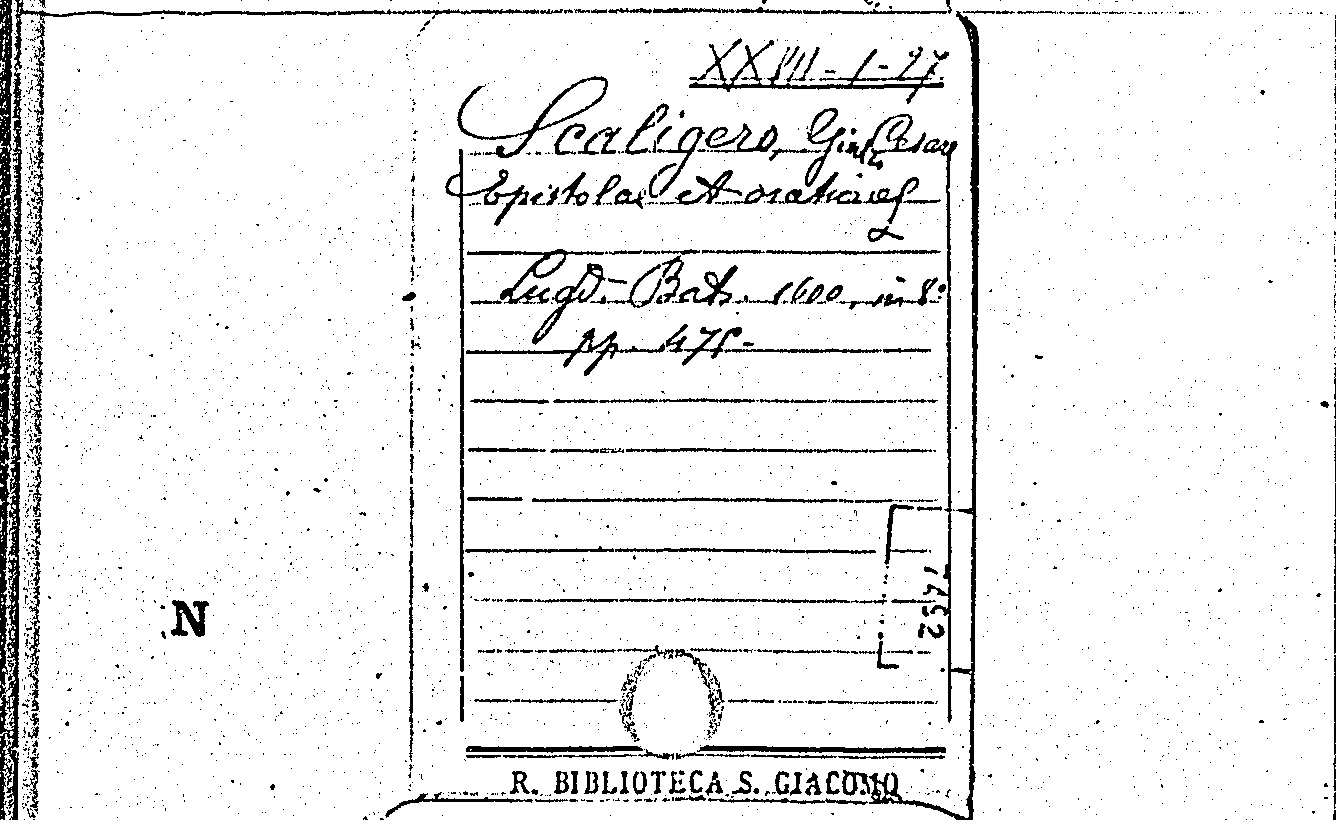 XXIII-1-27
Scaligero, Giul. Cesare
Epistolae et orationes
Lugd. Bat. 1600, in 8°
pp. 475.
N
R. BIBLIOTECA S. GIACOMO